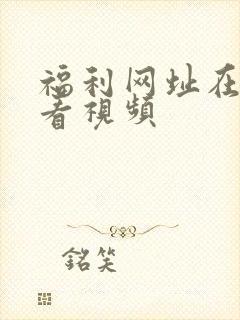 福利网址在
看視頻
銘笑